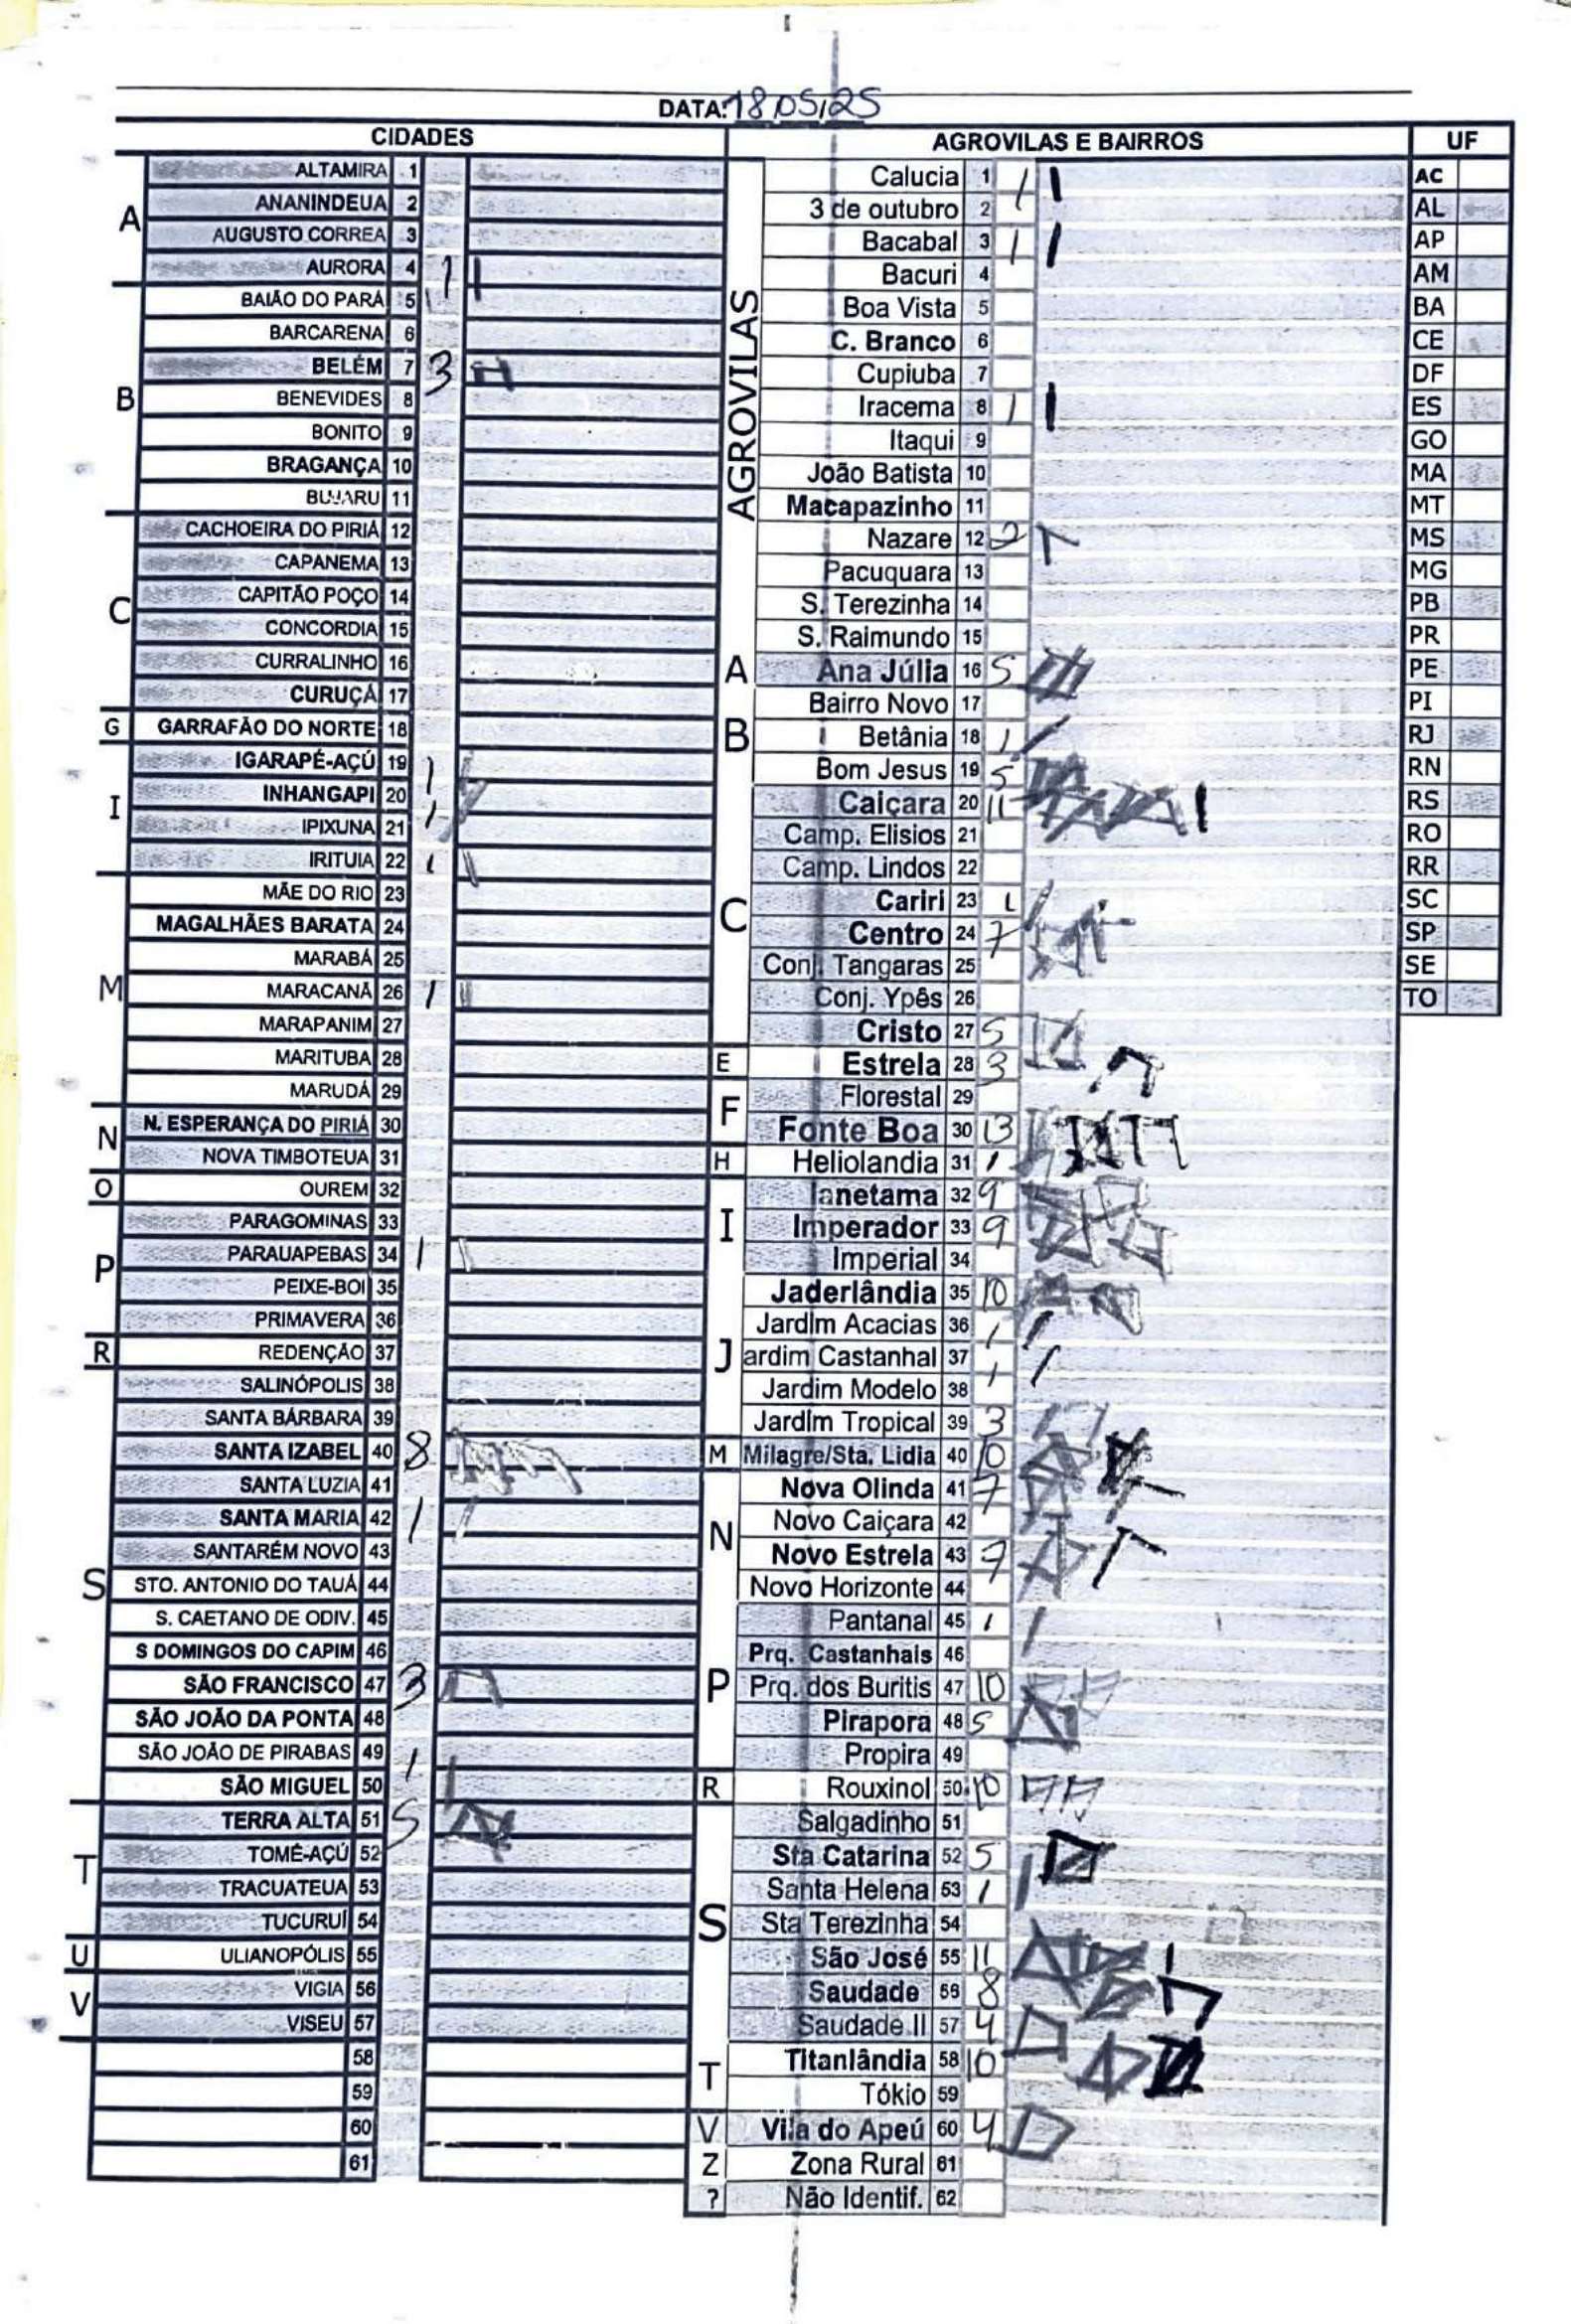 DATA: 18/05/25
CIDADES
A
ALTAMIRA 1
ANANINDEUA 2
AUGUSTO CORREA 3
AURORA 4 1
B
BAIÃO DO PARÁ 5
BARCARENA 6
BELÉM 7 3
BENEVIDES 8
BONITO 9
BRAGANÇA 10
BUJARU 11
C
CACHOEIRA DO PIRIÁ 12
CAPANEMA 13
CAPITÃO POÇO 14
CONCORDIA 15
CURRALINHO 16
CURUÇÁ 17
G
GARRAFÃO DO NORTE 18
I
IGARAPÉ-AÇÚ 19 1
INHANGAPI 20 1
IPIXUNA 21
IRITUIA 22 1
M
MÃE DO RIO 23
MAGALHÃES BARATA 24
MARABÁ 25
MARACANÃ 26 1
MARAPANIM 27
MARITUBA 28
MARUDÁ 29
N
N. ESPERANÇA DO PIRIÁ 30
NOVA TIMBOTEUA 31
O
OUREM 32
P
PARAGOMINAS 33
PARAUAPEBAS 34 1
PEIXE-BOI 35
PRIMAVERA 36
R
REDENÇÃO 37
S
SALINÓPOLIS 38
SANTA BÁRBARA 39
SANTA IZABEL 40 8
SANTA LUZIA 41
SANTA MARIA 42 1
SANTARÉM NOVO 43
STO. ANTONIO DO TAUÁ 44
S. CAETANO DE ODIV. 45
S DOMINGOS DO CAPIM 46
SÃO FRANCISCO 47 3
SÃO JOÃO DA PONTA 48
SÃO JOÃO DE PIRABAS 49
SÃO MIGUEL 50 1
T
TERRA ALTA 51 5
TOMÉ-AÇÚ 52
TRACUATEUA 53
TUCURUÍ 54
U
ULIANOPÓLIS 55
V
VIGIA 56
VISEU 57
58
59
60
61
AGROVILAS E BAIRROS
AGROVILAS
Calucia 1 1
3 de outubro 2
Bacabal 3 1
Bacuri 4
Boa Vista 5
C. Branco 6
Cupiuba 7
Iracema 8 1
Itaqui 9
João Batista 10
Macapazinho 11
Nazare 12 2
Pacuquara 13
S. Terezinha 14
S. Raimundo 15
A
Ana Júlia 16 5
B
Bairro Novo 17
Betânia 18 1
Bom Jesus 19 5
C
Caiçara 20 11
Camp. Elisios 21
Camp. Lindos 22
Cariri 23 1
Centro 24 7
Conj. Tangaras 25
Conj. Ypês 26
Cristo 27 5
E
Estrela 28 3
F
Florestal 29
Fonte Boa 30 13
H
Heliolandia 31 1
I
Ianetama 32 9
Imperador 33 9
Imperial 34
J
Jaderlândia 35 10
Jardim Acacias 36 1
ardim Castanhal 37 1
Jardim Modelo 38
Jardim Tropical 39 3
M
Milagre/Sta. Lidia 40 10
N
Nova Olinda 41 7
Novo Caiçara 42
Novo Estrela 43 7
Novo Horizonte 44
P
Pantanal 45 1
Prq. Castanhais 46
Prq. dos Buritis 47 10
Pirapora 48 5
Propira 49
R
Rouxinol 50 10
S
Salgadinho 51
Sta Catarina 52 5
Santa Helena 53 1
Sta Terezinha 54
São José 55 11
Saudade 56 8
Saudade II 57 4
T
Titanlândia 58 10
Tókio 59
V
Vila do Apeú 60 4
Z
Zona Rural 61
?
Não Identif. 62
UF
AC
AL
AP
AM
BA
CE
DF
ES
GO
MA
MT
MS
MG
PB
PR
PE
PI
RJ
RN
RS
RO
RR
SC
SP
SE
TO